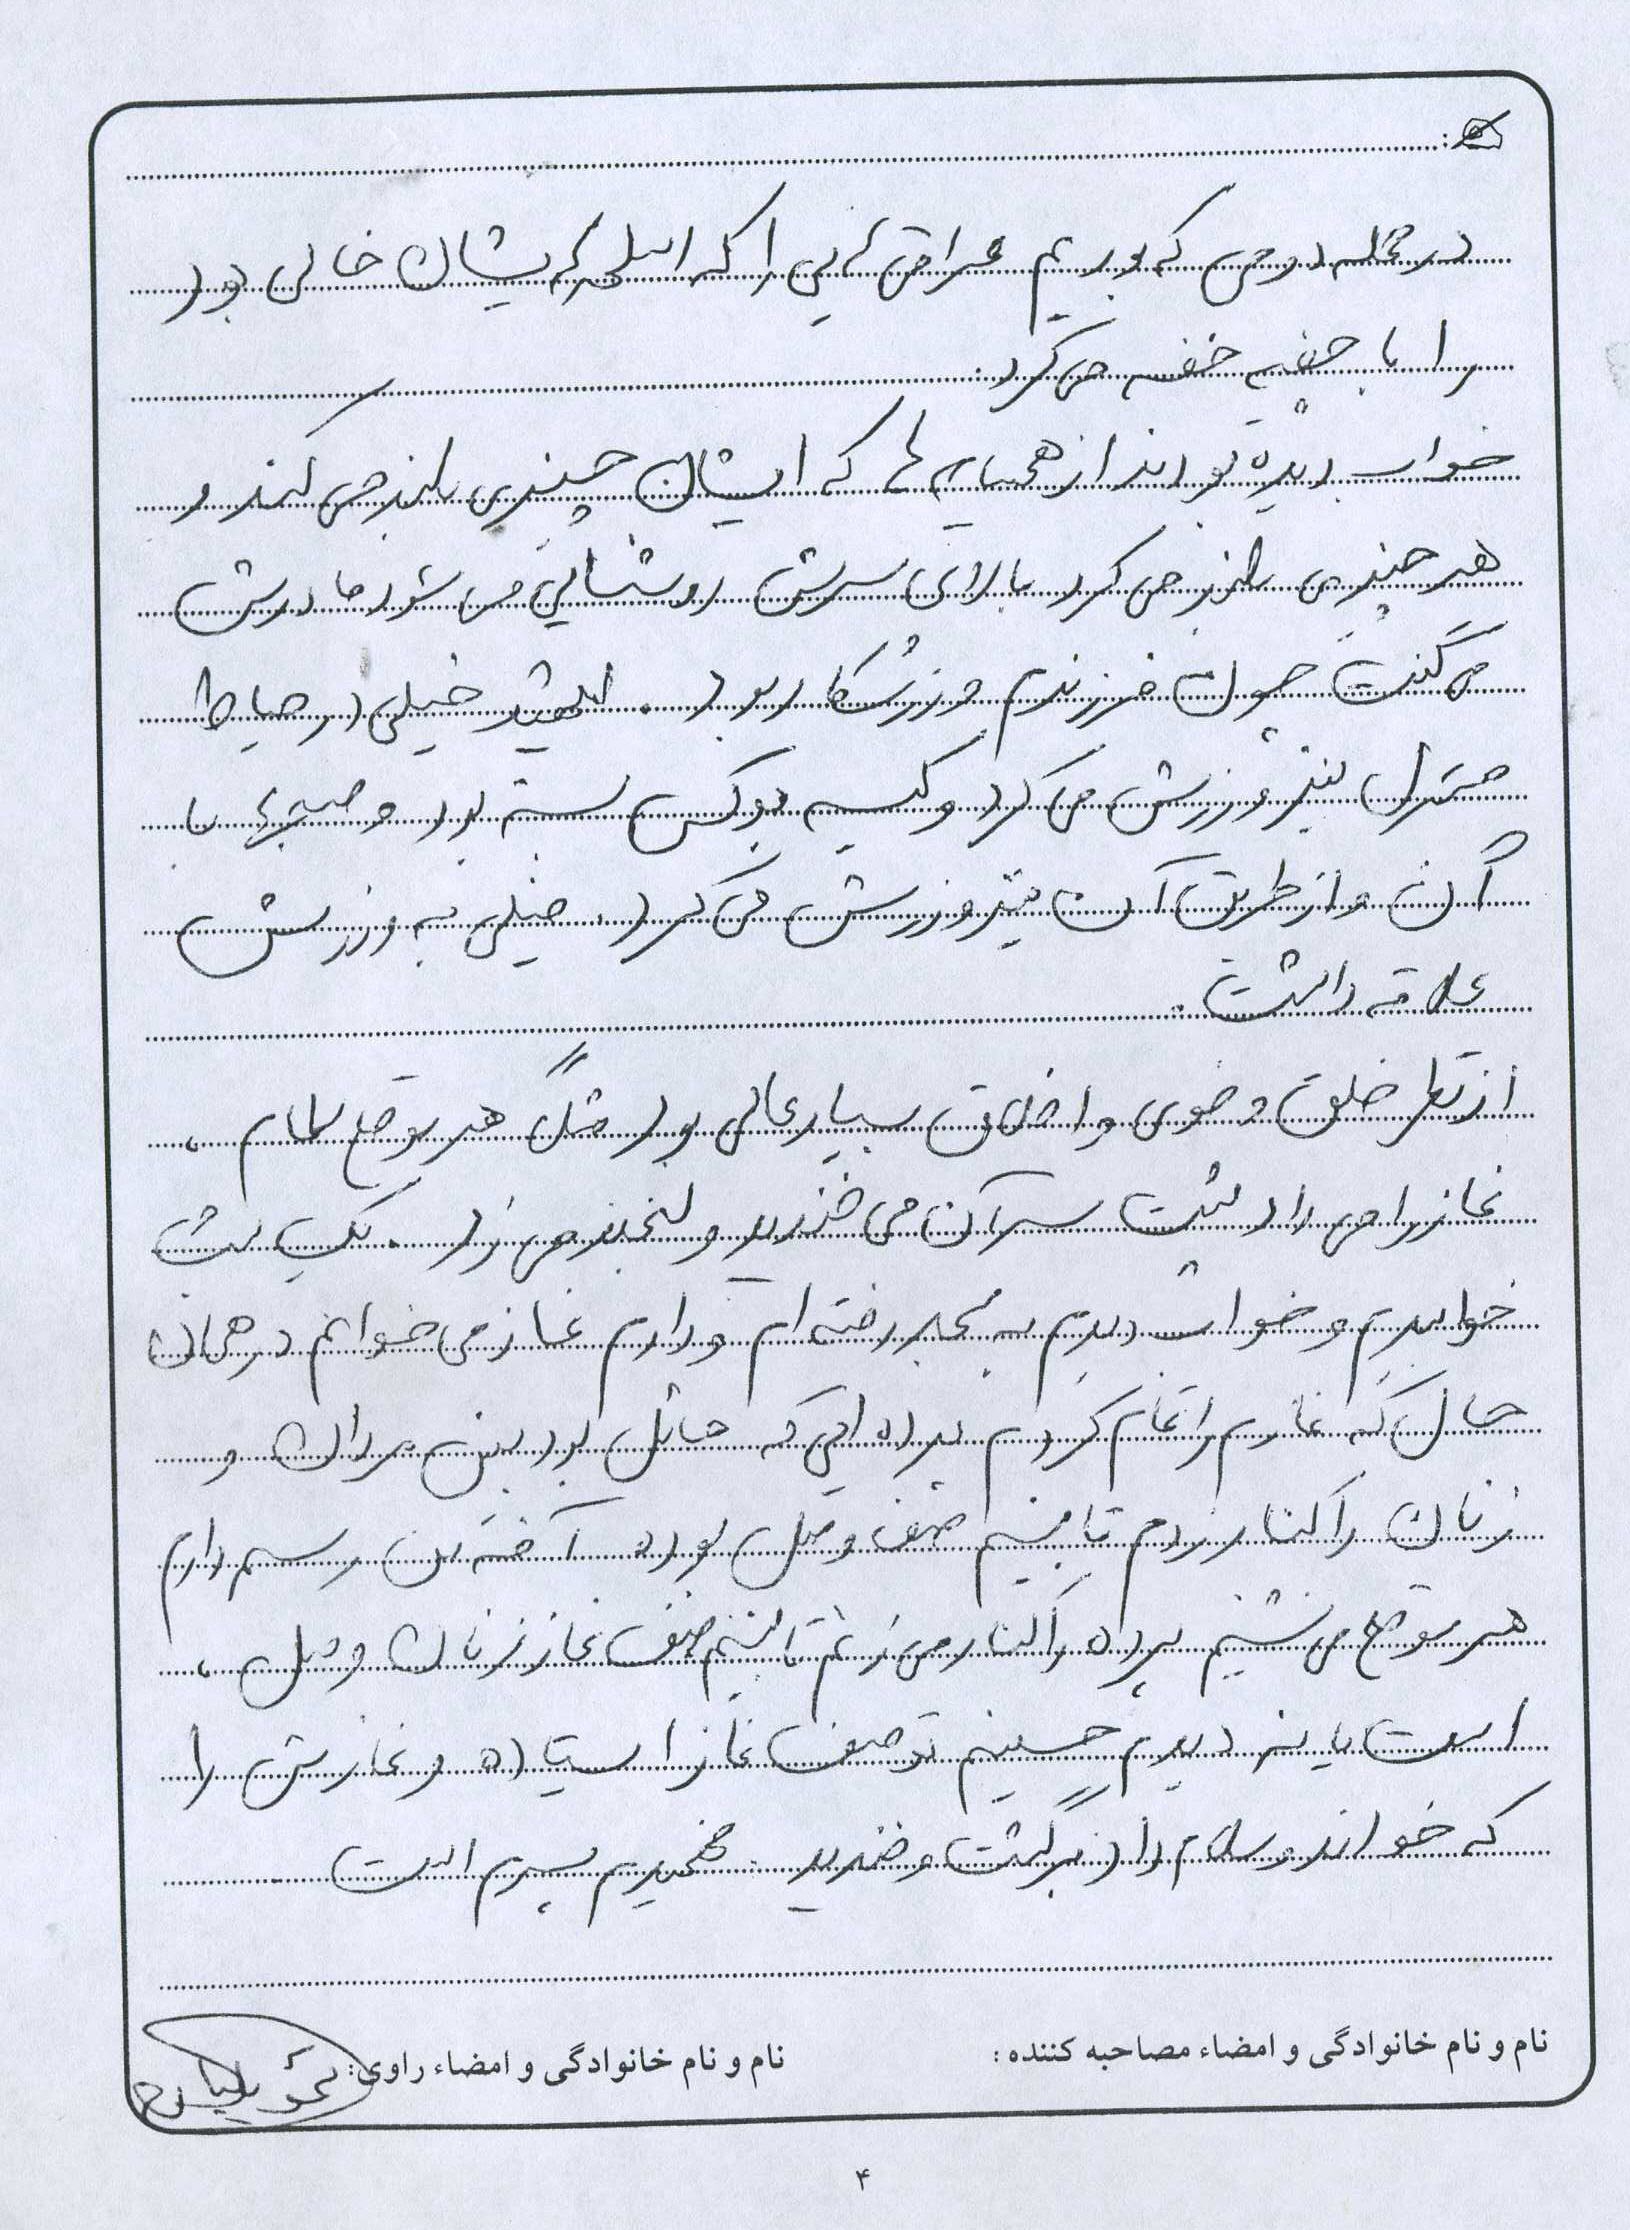 در حمله دومی که بودیم عراقی هایی را که اسلحه هایشان خالی بود
را با چفیه خفه می کرد.
خواب دیده بودند از همسایه ها که ایشان چیزی بلند می کند و
هر چیزی بلند می کرد بالای سرش روشنایی می شود مادرش
می گفت چون فرزندم ورزشکار بود. شهید خیلی در حیاط
منزل نیز ورزش می کرد و کیسه بوکس بسته بود و صبح ها با
آن و از طریق آن نیز ورزش می کرد. خیلی به ورزش
علاقه داشت.
از نظر خلق و خوی و اخلاق بسیار عالی بود مثلاً هر موقع سلام
نماز را می داد پشت سر آن می خندید و لبخند می زد. یک شب
خوابیدم و خواب دیدم به مسجد رفته ام و دارم نماز می خوانم در همان
حال که نمازم را تمام کردم پرده ایی که حائل بود بین مردان و
زنان را کنار زدم تا ببینم صف وصل بوده آخه من رسم دارم
هر موقع می نشینم پرده را کنار می زنم تا ببینم صف نماز زنان وصل
است یا نه دیدم حسینم تو صف نماز ایستاده و نمازش را
که خواند و سلام داد برگشت و خندید. فهمیدم پسرم است
نام و نام خانوادگی و امضاء مصاحبه کننده :
نام و نام خانوادگی و امضاء راوی:
۴